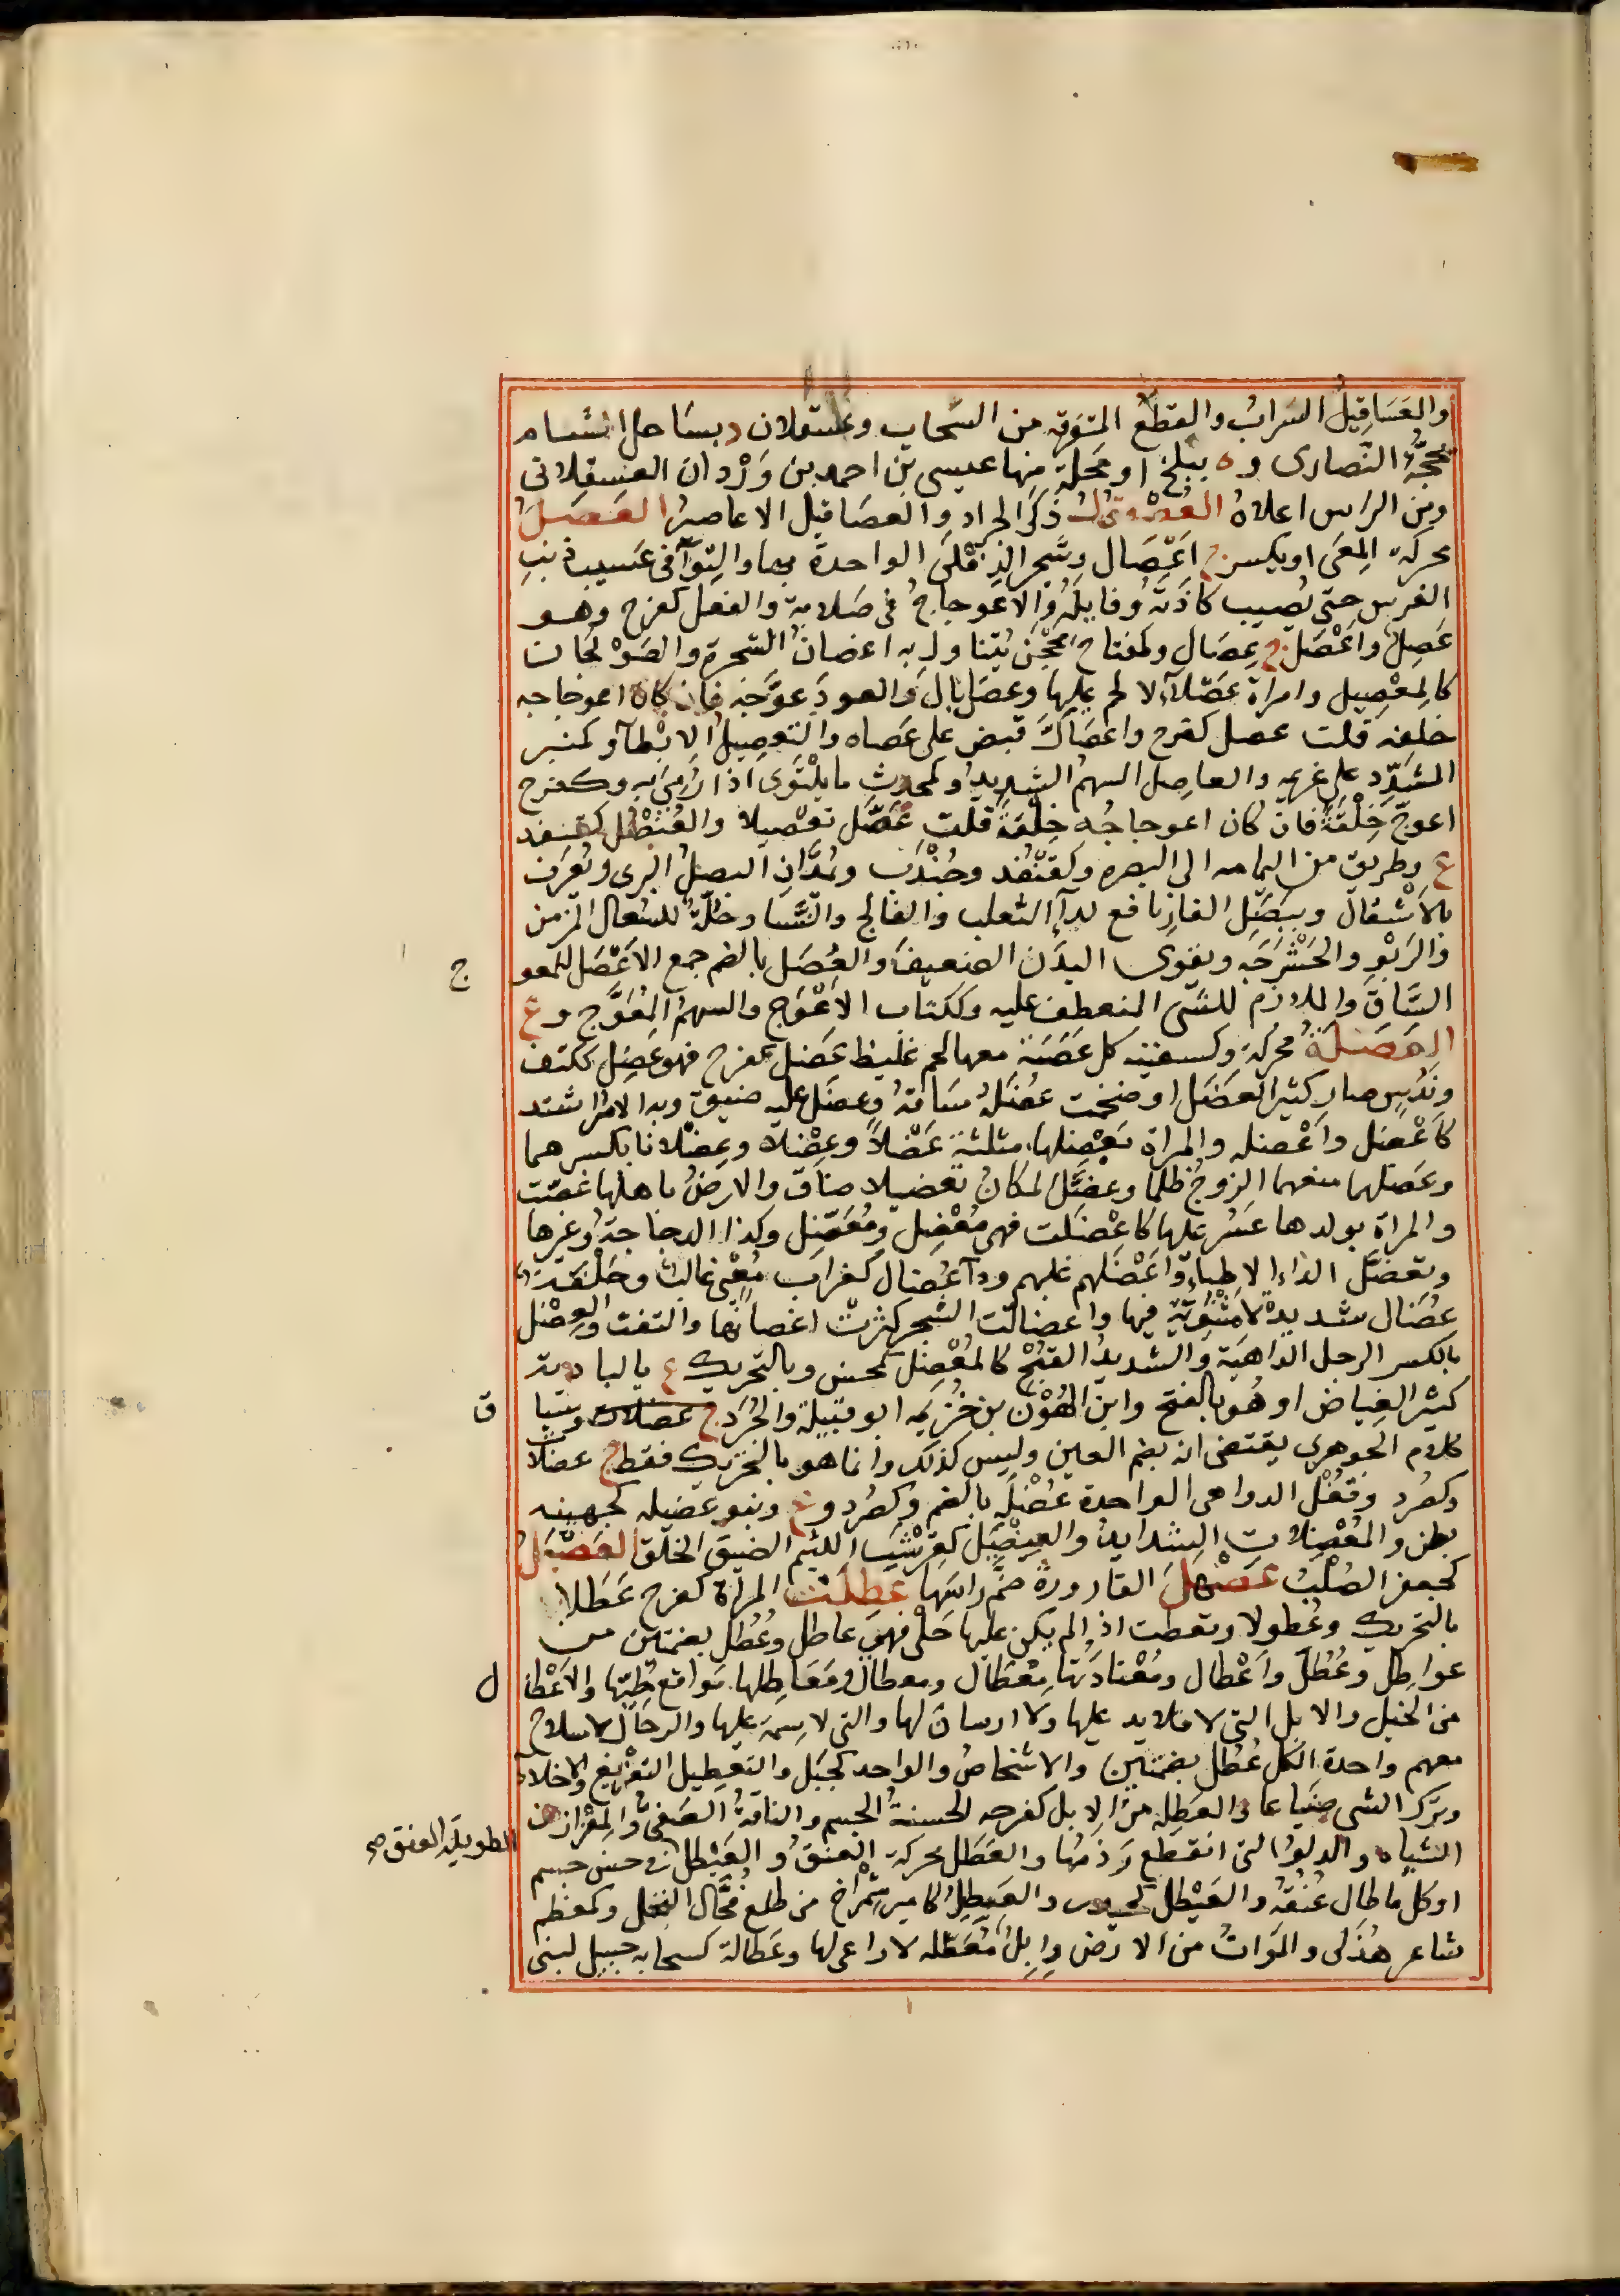 والعَسَاقِيل السَراب والقِطَع المتفرقه من السحاب وعسقلان د بساحل الشام
تحجّه النصارى وه ببلخ او محلة منها عيسى بن احمد بن وَرْدان العسقلانى
ومن الراس اعلاهُ العُصْقول ذَكَر الجراد والعصاقيل الاعاصير العَصَل
محركة المِعَى او يكسر ج اَعْصَال وشجر الدِفْلى الواحدة بهاء والتوآ فى عَسيب ذنَب
الفرس حتى يُصيب كاذَتَهُ وفايلَهُ والاعوجاج فى صَلابة والفعل كفرح وهو
عَصِل واَعْصَل ج عِصَال وكمفتاح مِحْجَن يُتناول به اغصان الشجرة والصَوْلَجان
كالمِعْصيل وامراة عَصْلآء لا لحم عليها وعَصَل بال والعودَ عوّجه فان كان اعوجاجه
خلقه قلت عصل كفرح واعصأَلَّ قبض على عَصاه والتعصيل الابْطآء وكمنبر
المشَدِّد على غريمه والعاصل السهم الشديد وكمحدث ما يلْتَوى اذا رُمِىَ به وكفرح
اعوجّ خِلْقَةً فان كان اعوجاجُه خِلْقَةً قلت عَصَّل تعْصيلا والعُنْصُل كقنفذ
ع وطريق من اليمامه الى البصره وكقُنْفُذ وجُنْدَب ويُمَدّان البصل البرى ويُعْرَف
بالاَشْقال وببصَل الفار نافع لدآء الثعلب والفالج والنَّسا وخَلُّهُ للسُعال المزمن
والرَبْوِ والحَشْرَجَه ويقوى البدَن الضعيف والعُصْل بالضم جمع الاَعْصَل للمعو
ج
السَّاق والملازم للشى المنعطف عليه وككتاب الاَعْوَج والسهم المُعَوَّج وع
العَضَلَة محركة وكسفينة كل عَصَبَة معها لحم غليظ عَضِل كفرح فهو عَضِل ككتف
ونَدُس صار كثير العَضَل او ضخمت عُضَلَة سَاقهُ وعضَل عليه ضيق وبه الامر اشتد
كاَعْضل واَعْضله والمراة يَعْضِلها مثلثة عَضْلاً وعِضْلا وعِضْلانا بكسرهما
وعَضّلها منعها الزوج ظلما وعضّل المكان تعضيلا ضاق والارض باهلها غصّت
والمراة بولدها عَسُر عليها كاعْضَلت فهى مُعْضِل ومُعَضِّل وكذا الدجاجة وغيرها
وتعضّل الداء الاطباء واَعْضَلهم غلبهم ودآ عُضال كغراب مُعْىٍ غالب وحَلْفَة
عُضال شديدة لا مَثْنويّةَ فيها واعضالّت الشجر كثرت اغصانها والتفت والعِضْل
بالكسر الرجل الداهية والشديد القبْح كالمُعْضِل كمحسن وبالتحريك ع بالبادية
كثير الغِياض او هُو بالفتح وابن الهُوْن بن خُزيمه ابو قبيلة والجُرَذ ج عضلان وسيا
ق
كلام الجوهرى يقتضى انه بضم العين وليس كذلك وانما هو بالتحريك فقط ج عضلا
وكصُرد وقُفْل الدواهى الواحدة عُضْلَه بالضم وكصُرد وع وبنو عُضيله كجهينه
بطن والمُعْضِلات الشدايد والعِضْيَل كقِرْشَبّ اللئيم الضيق الخلق العَضْبَل
كجعفر الصُلْبُ عَضْهَلَ القارورة ضمّ راسَها عَطِلَتْ المرأة كفرح عَطَلا
بالتحريك وعُطولا وتعطلت اذا لم يكن عليها حَلْى فهى عاطل وعُطُل بضمتين من
عواطل وعُطَّل واَعْطال ومُعْتادَتها مِعْطال ومعطال ومَعَاطلها مَواقع حُلِيّها والاَعْطا
ل
من الخيل والابل التى لا قلايد عليها ولا ارسانَ لها والتى لا سِمَةَ عليها والرجال لا سلاح
معهم واحدة الكل عُطُل بضمتين والاشخاص والواحد كجَبَل والتعطيل التفريغ والاخلاء
وترك الشى ضَياعا والعَطِله من الابل كفرحه الحسنة الجسم والناقة الصفىّ والمِغْزار من
الشياه والدلو التى انقطع وَذَمُها والعَطَل محركة العُنق والعَيْطل الطويلة العنق فى حسن جسم
او كل ما طال عُنُقهُ والعَيْطل كحيدر والعَطِيل كامير شِمْراخ من طلع فُحّال النخل وكمعظم
شاعر هُذَلى والمَواتُ من الارض وابِل مُعَطّله لا راعى لها وعَطالة كسحابه جبيل لبنى